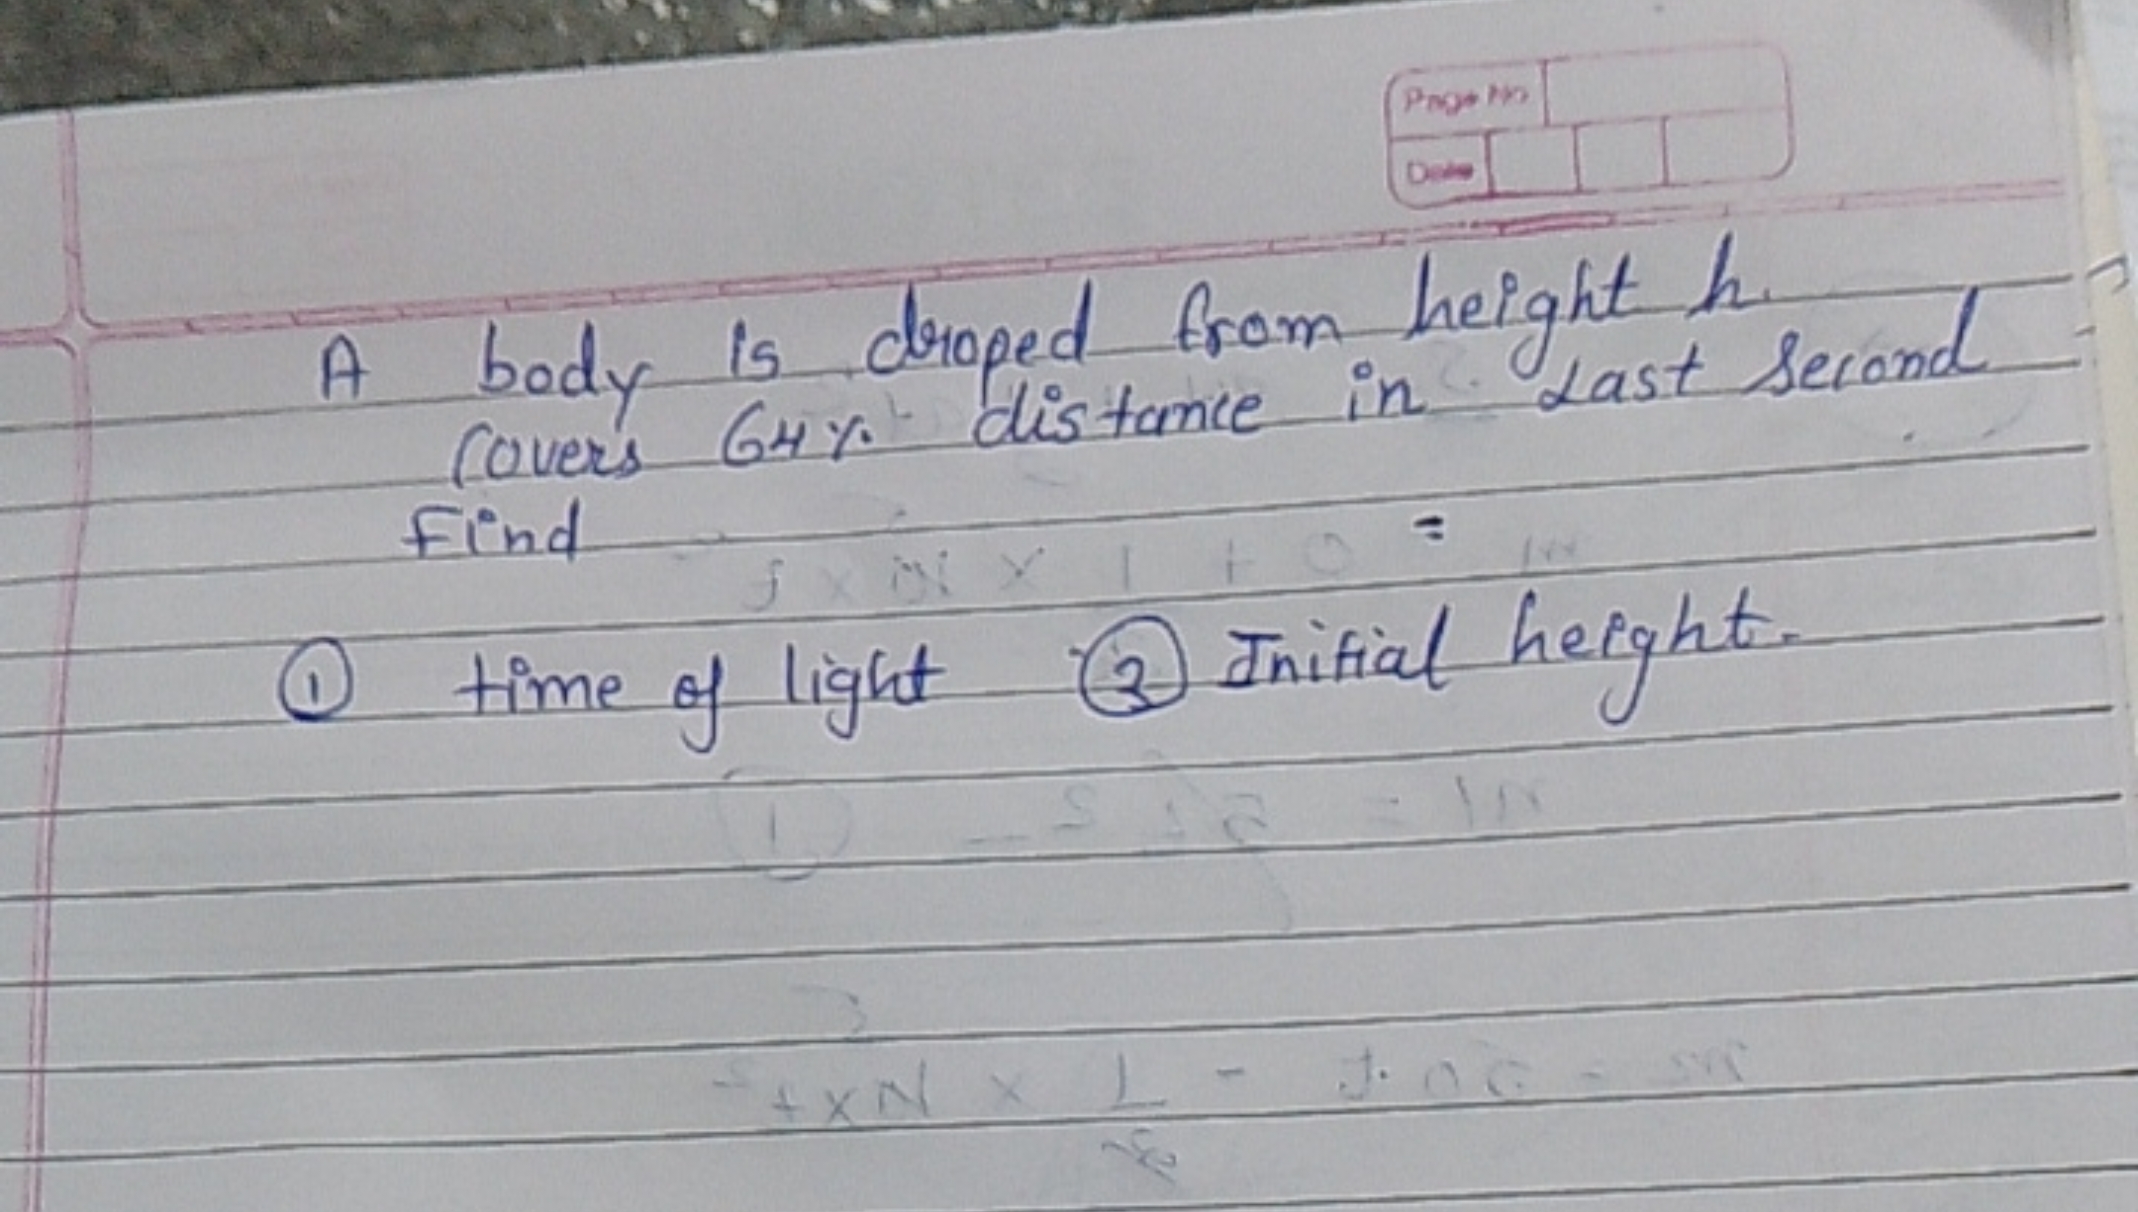 Page No
Date
A body is droped from height h.
Covers 64%. distance in Last second
Find
① time of light ② Initial height.